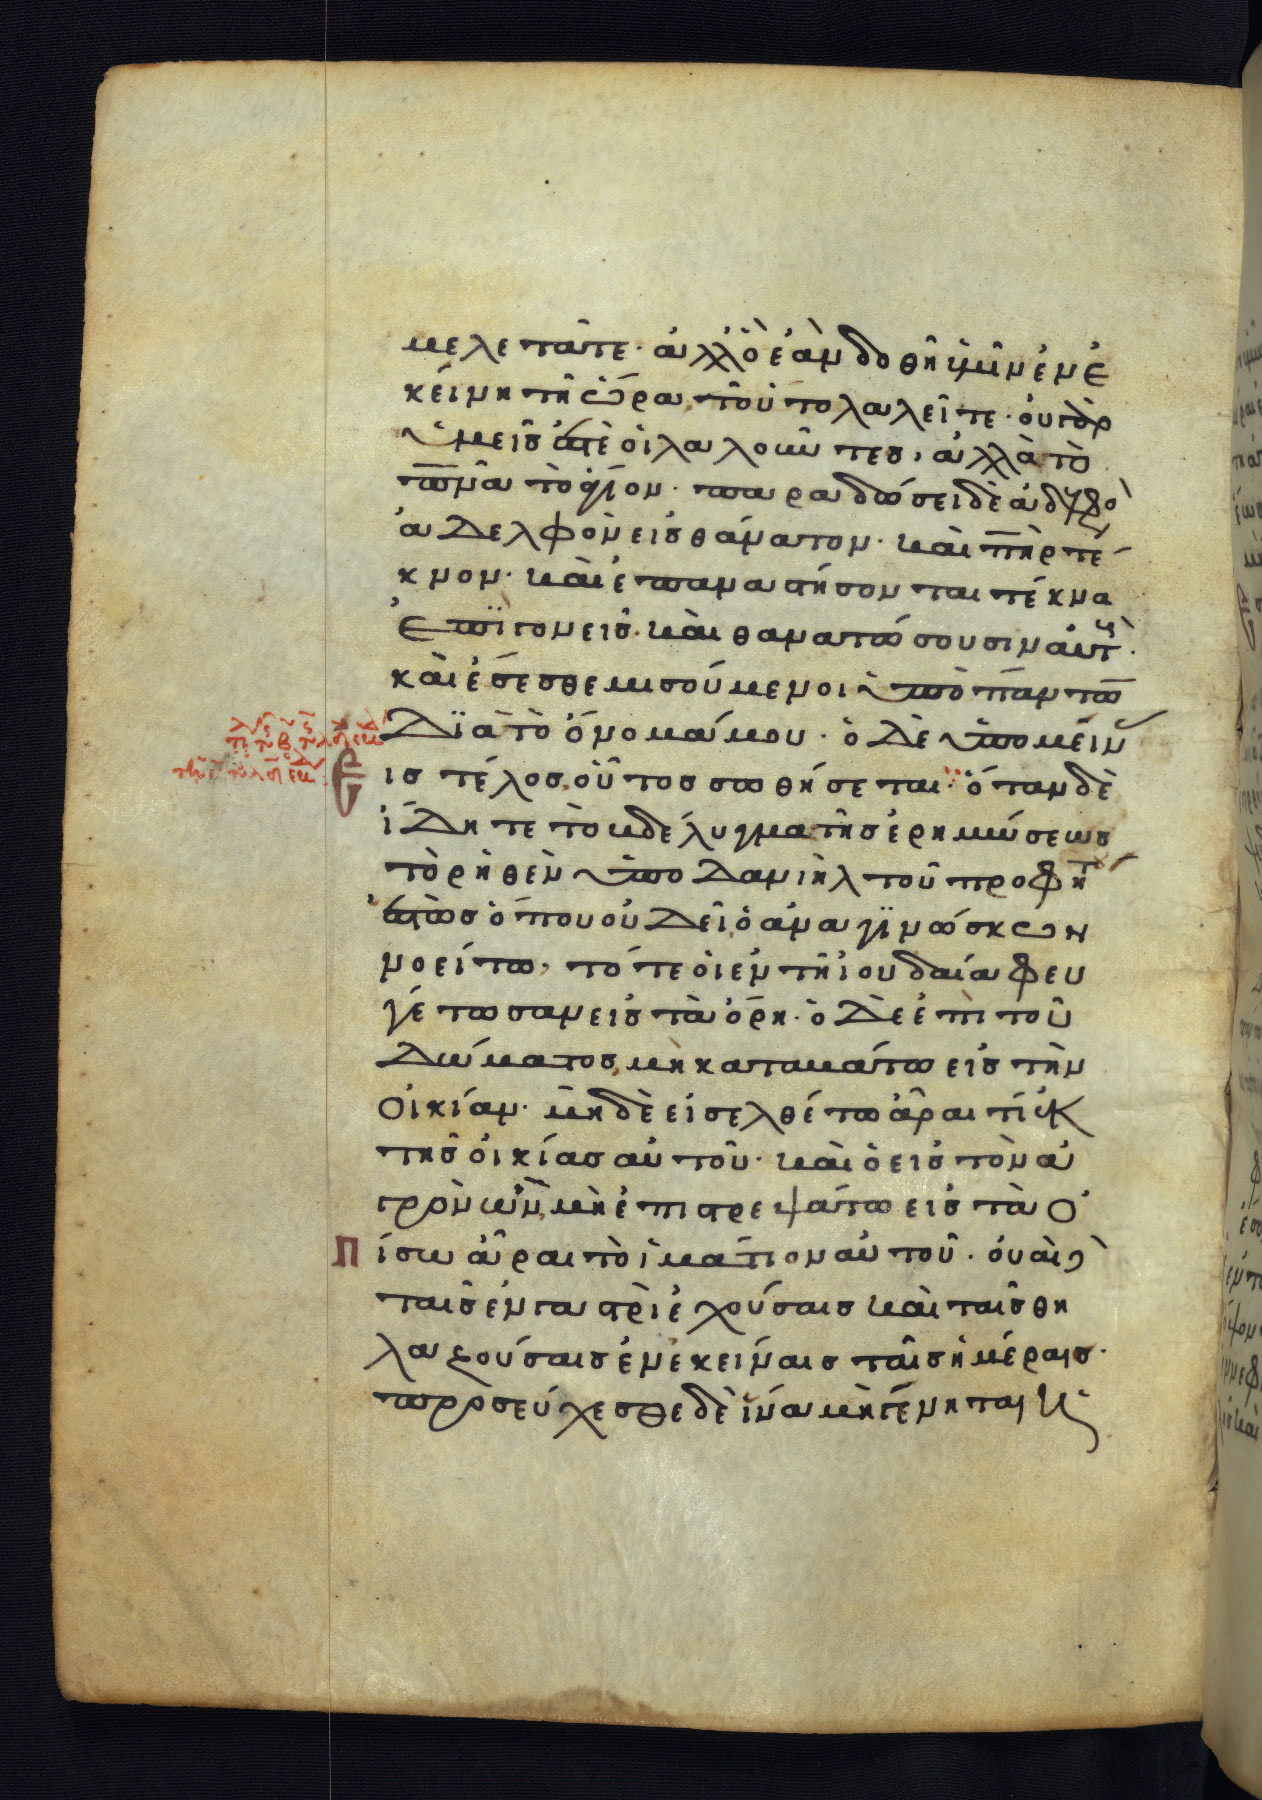 μελετᾶτε· ἀλλ ὃ ἐὰν δοθῆ ὑμῖν ἐν ἐ
κείνη τῆ ὥρα, τοῦτο λαλεῖτε· οὐ γὰρ
ὑμεῖς ἐστὲ οἱ λαλοῦντες, ἀλλὰ τὸ
πνᾶ τὸ ἅγιον· παραδώσει δὲ ἀδελφὸ
ἀδελφὸν εἰς θάνατον· καὶ πηρ τέ
κνον· καὶ ἐπαναστήσονται τέκνα
ἐπὶ γονεῖς· καὶ θανατώσουσιν αὐτ·
καὶ ἔσεσθε μισούμενοι ὑπὸ πάντω
διὰ τὸ ὄνομά μου· ὁ δὲ ὑπομείν
ις τέλος, οὗτος σωθήσεται· ὅταν δὲ
ἴδητε τὸ βδέλυγμα τῆς ἐρημώσεως
τὸ ῥηθὲν ὑπὸ δανιὴλ τοῦ προφήτ
ἑστὼς ὅπου οὐ δεῖ, ὁ ἀναγινώσκων
νοείτω, τότε οἱ ἐν τῆ ἰουδαία φευ
γέτωσαν εἰς τὰ ὄρη· ὁ δὲ ἐπὶ τοῦ
δώματος, μὴ καταβάτω εἰς τὴν
οἰκίαν· μηδὲ εἰσελθέτω ἆραι τί ἐκ
τῆς οἰκίας αὐτοῦ· καὶ ὁ εἰς τὸν ἀ
γρὸν ὢν, μὴ ἐπιστρεψάτω εἰς τὰ ὀ
Π ίσω ἆραι τὸ ἱμάτιον αὐτοῦ· οὐαὶ
ταῖς ἐν γαστρὶ ἐχούσαις καὶ ταῖς θη
λαζούσαις ἐν ἐκείναις ταῖς ἡμέραις·
προσεύχεσθε δὲ ἵνα μὴ γένηται